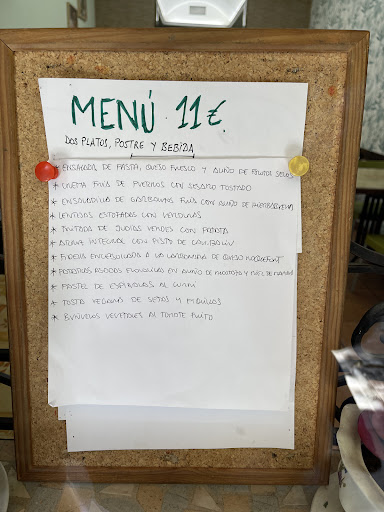 MENÚ 11€
DOS PLATOS, POSTRE Y BEBIDA
* ENSALADA DE PASTA, QUESO FRESCO Y ALIÑO DE FRUTOS SECOS
* CREMA FRÍA DE PUERROS CON SESAMO TOSTADO
* ENSALADILLA DE GARBANZOS FRÍA CON ALIÑO DE HIERBABUENA
* LENTEJAS ESTOFADAS CON VERDURAS
* TORTILLA DE JUDIAS VERDES CON PATATA
* ARROZ INTEGRAL CON PISTO DE CALABACÍN
* FIDEUA ENCEBOLLADA A LA CARBONARA DE QUESO ROQUEFORT
* ASADOS EN ALIÑO DE MOSTAZA Y MIEL
* PASTEL DE ESPINACAS AL CURRY
* TOSTA VEGANA DE SETAS Y PIQUILLOS
* BUÑUELOS VEGETALES AL TOMATE FRITO